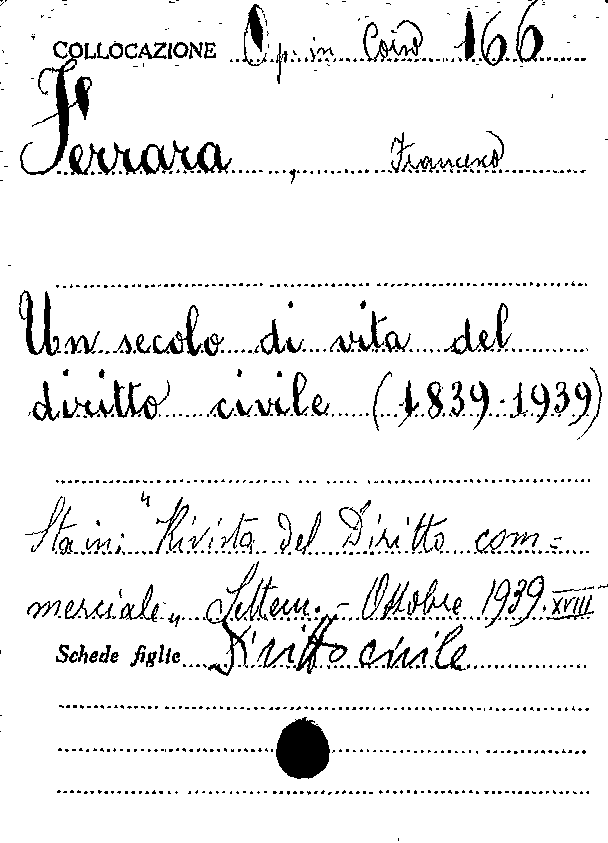 COLLOCAZIONE Op. in Coiro 166
Ferrara, Francesco
Un secolo di vita del
diritto civile (1839-1939)
Sta in: "Rivista del Diritto com=
merciale„ Settem. - Ottobre 1939. XVIII
Schede figlie Diritto civile